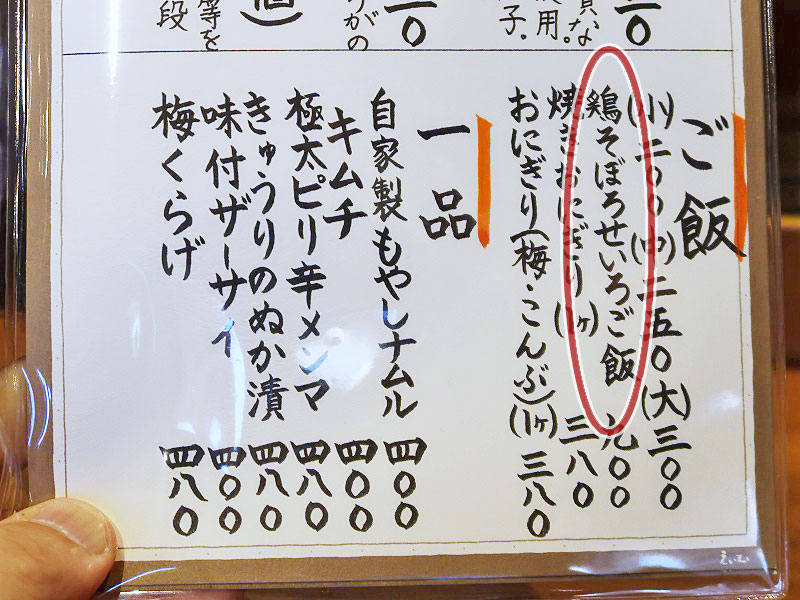 な
用。
子.
がの
等を
段
ご飯
(小)二〇〇(中)二五〇(大)三〇〇
鶏そぼろせいろご飯 九〇〇
焼きおにぎり(1ヶ) 三八〇
おにぎり(梅・こんぶ)(1ヶ) 三八〇
一品
自家製もやしナムル 四〇〇
キムチ 四〇〇
極太ピリ辛メンマ 四八〇
きゅうりのぬか漬 四八〇
味付ザーサイ 四〇〇
梅くらげ 四八〇
えいむ